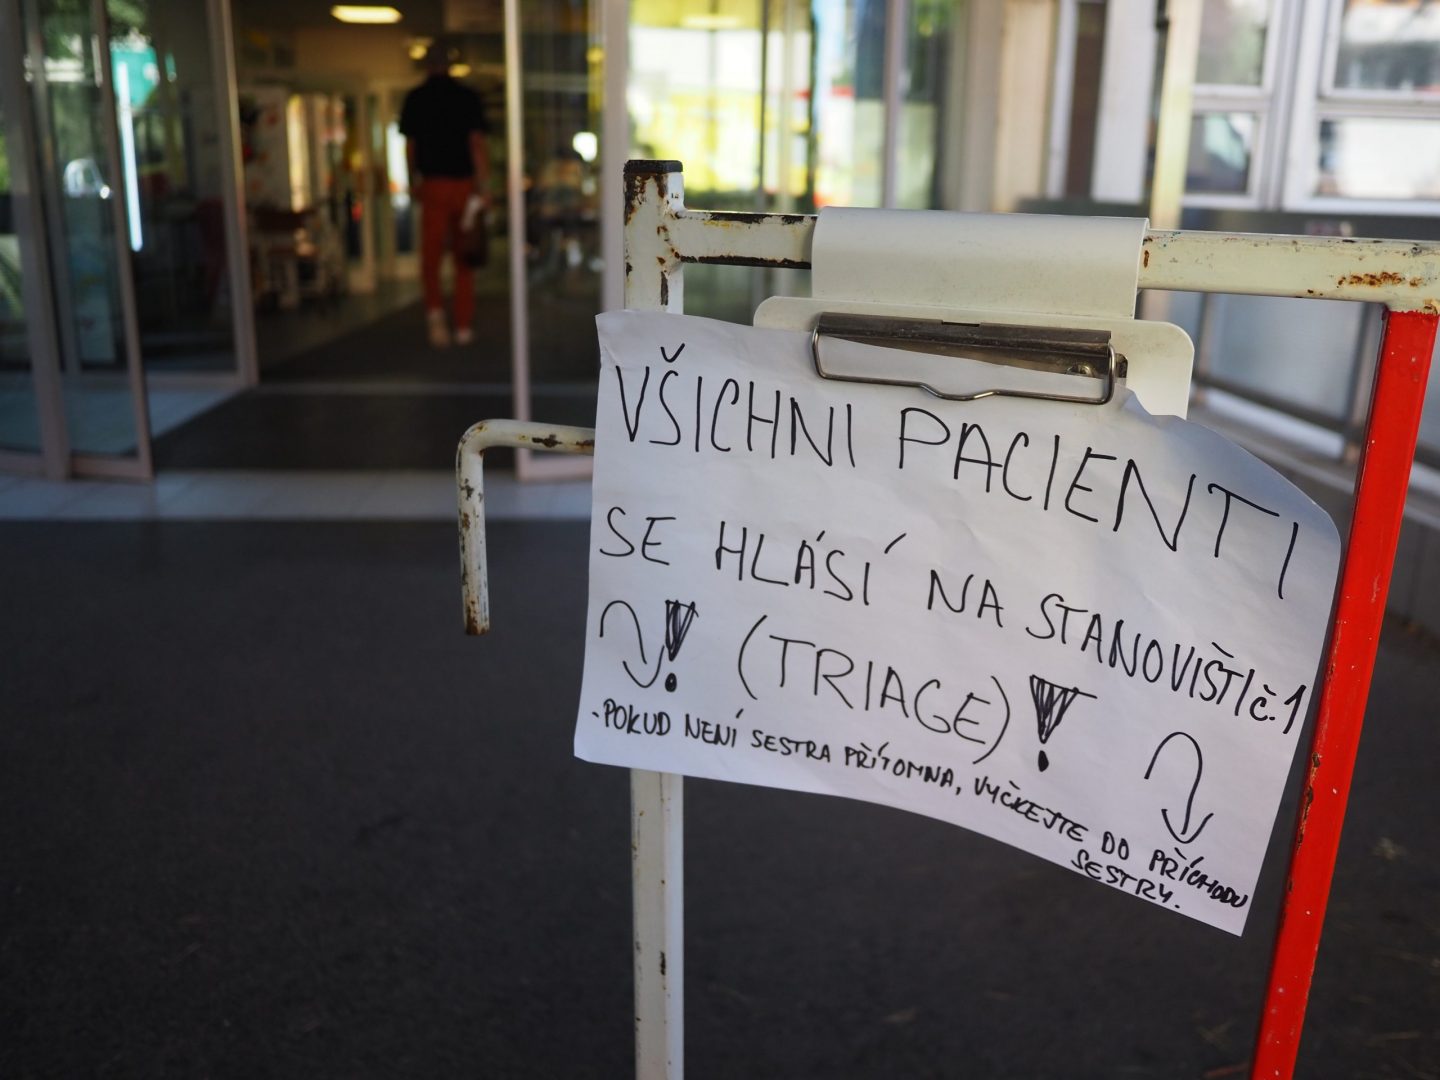 VŠICHNI PACIENTI
SE HLÁSÍ NA STANOVIŠTI č.1
! (TRIAGE) !
- POKUD NENÍ SESTRA PŘÍTOMNA, VYČKEJTE DO PŘÍCHODU
SESTRY.